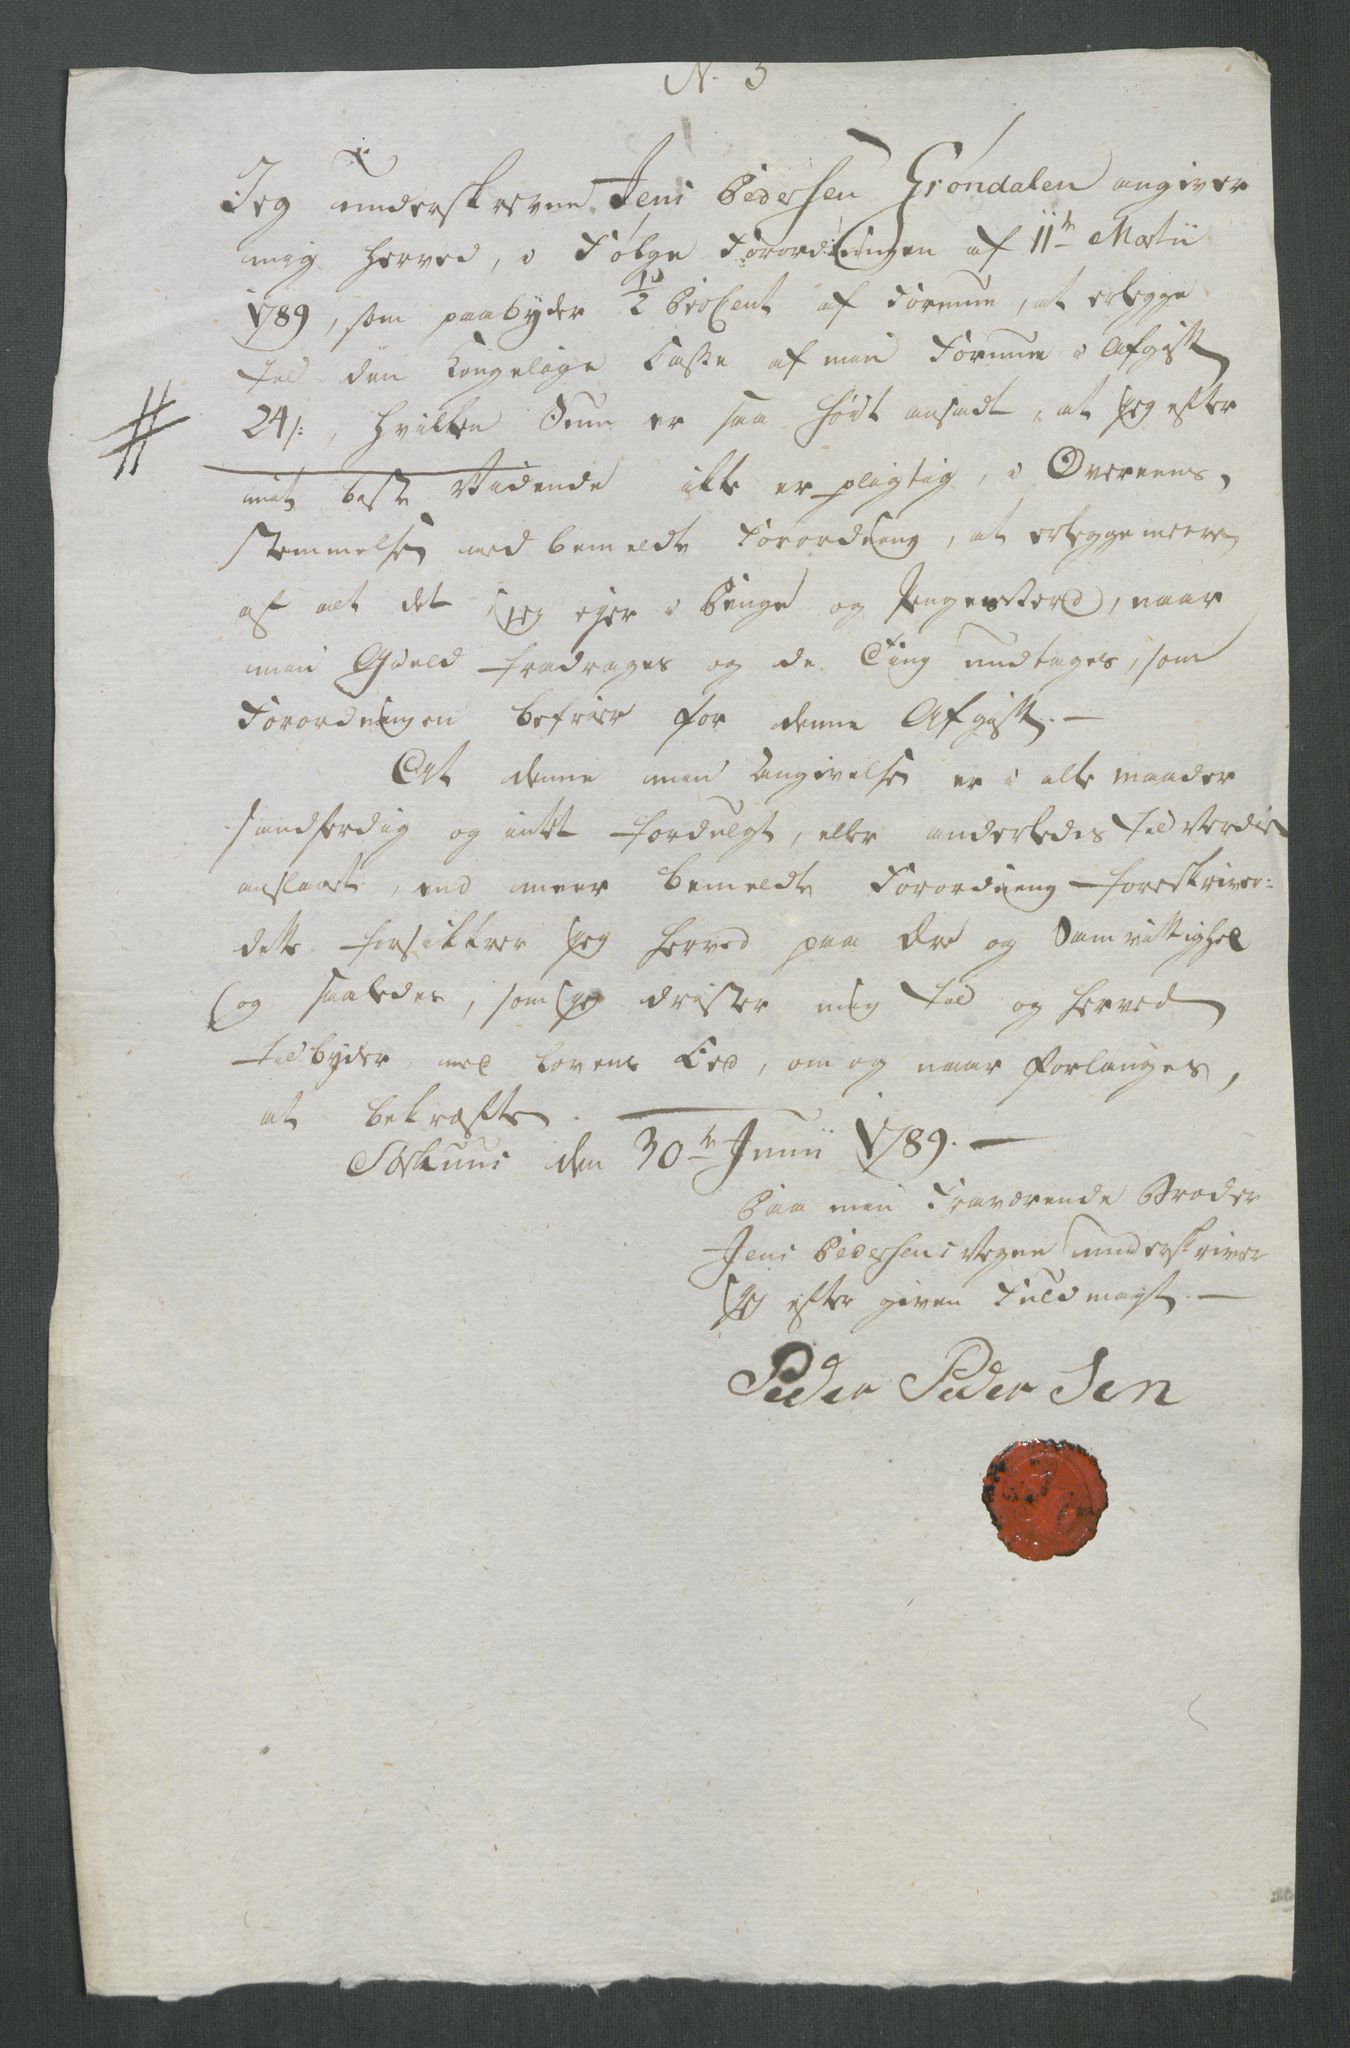 N. 3
Jeg underskrevne Jens Pedersen Grøndalen angiver
mig herved, i Følge Forordningen af 11te Martii
1789, som paabyder 1/2 ProCent af Formue, at erlegge
til den Kongelige Casse af min Formue i Afgift
24 s:, hvilken Sum er saa høit ansadt, at jeg efter
mit beste Vidende ikke er pligtig, i Overeens-
stemmelse med bemeldte Forordning, at erlegge meere
af alt det jeg ejer i Penge og Pengesverd, naar
min Gield fradrages og de Ting undtages, som
Forordningen befrier for denne Afgift. —
At denne min Angivelse er i alle maader
sandferdig og intet fordulgt, eller anderledes til Verdie
anslaaet, end meer bemeldte Forordning foreskriver:
dette forsikkrer jeg herved paa Ære og Samvittighed
og saaledes, som jeg drister mig til og herved
tilbyder med Lovens Eed, om og naar forlanges,
at bekræfte. —
den 30te Junii 1789. —
Paa min Fraværende Broder
Jens Pedersens Vegne underskriver
jeg efter given Fuldmagt. —
Peder Peder Sen